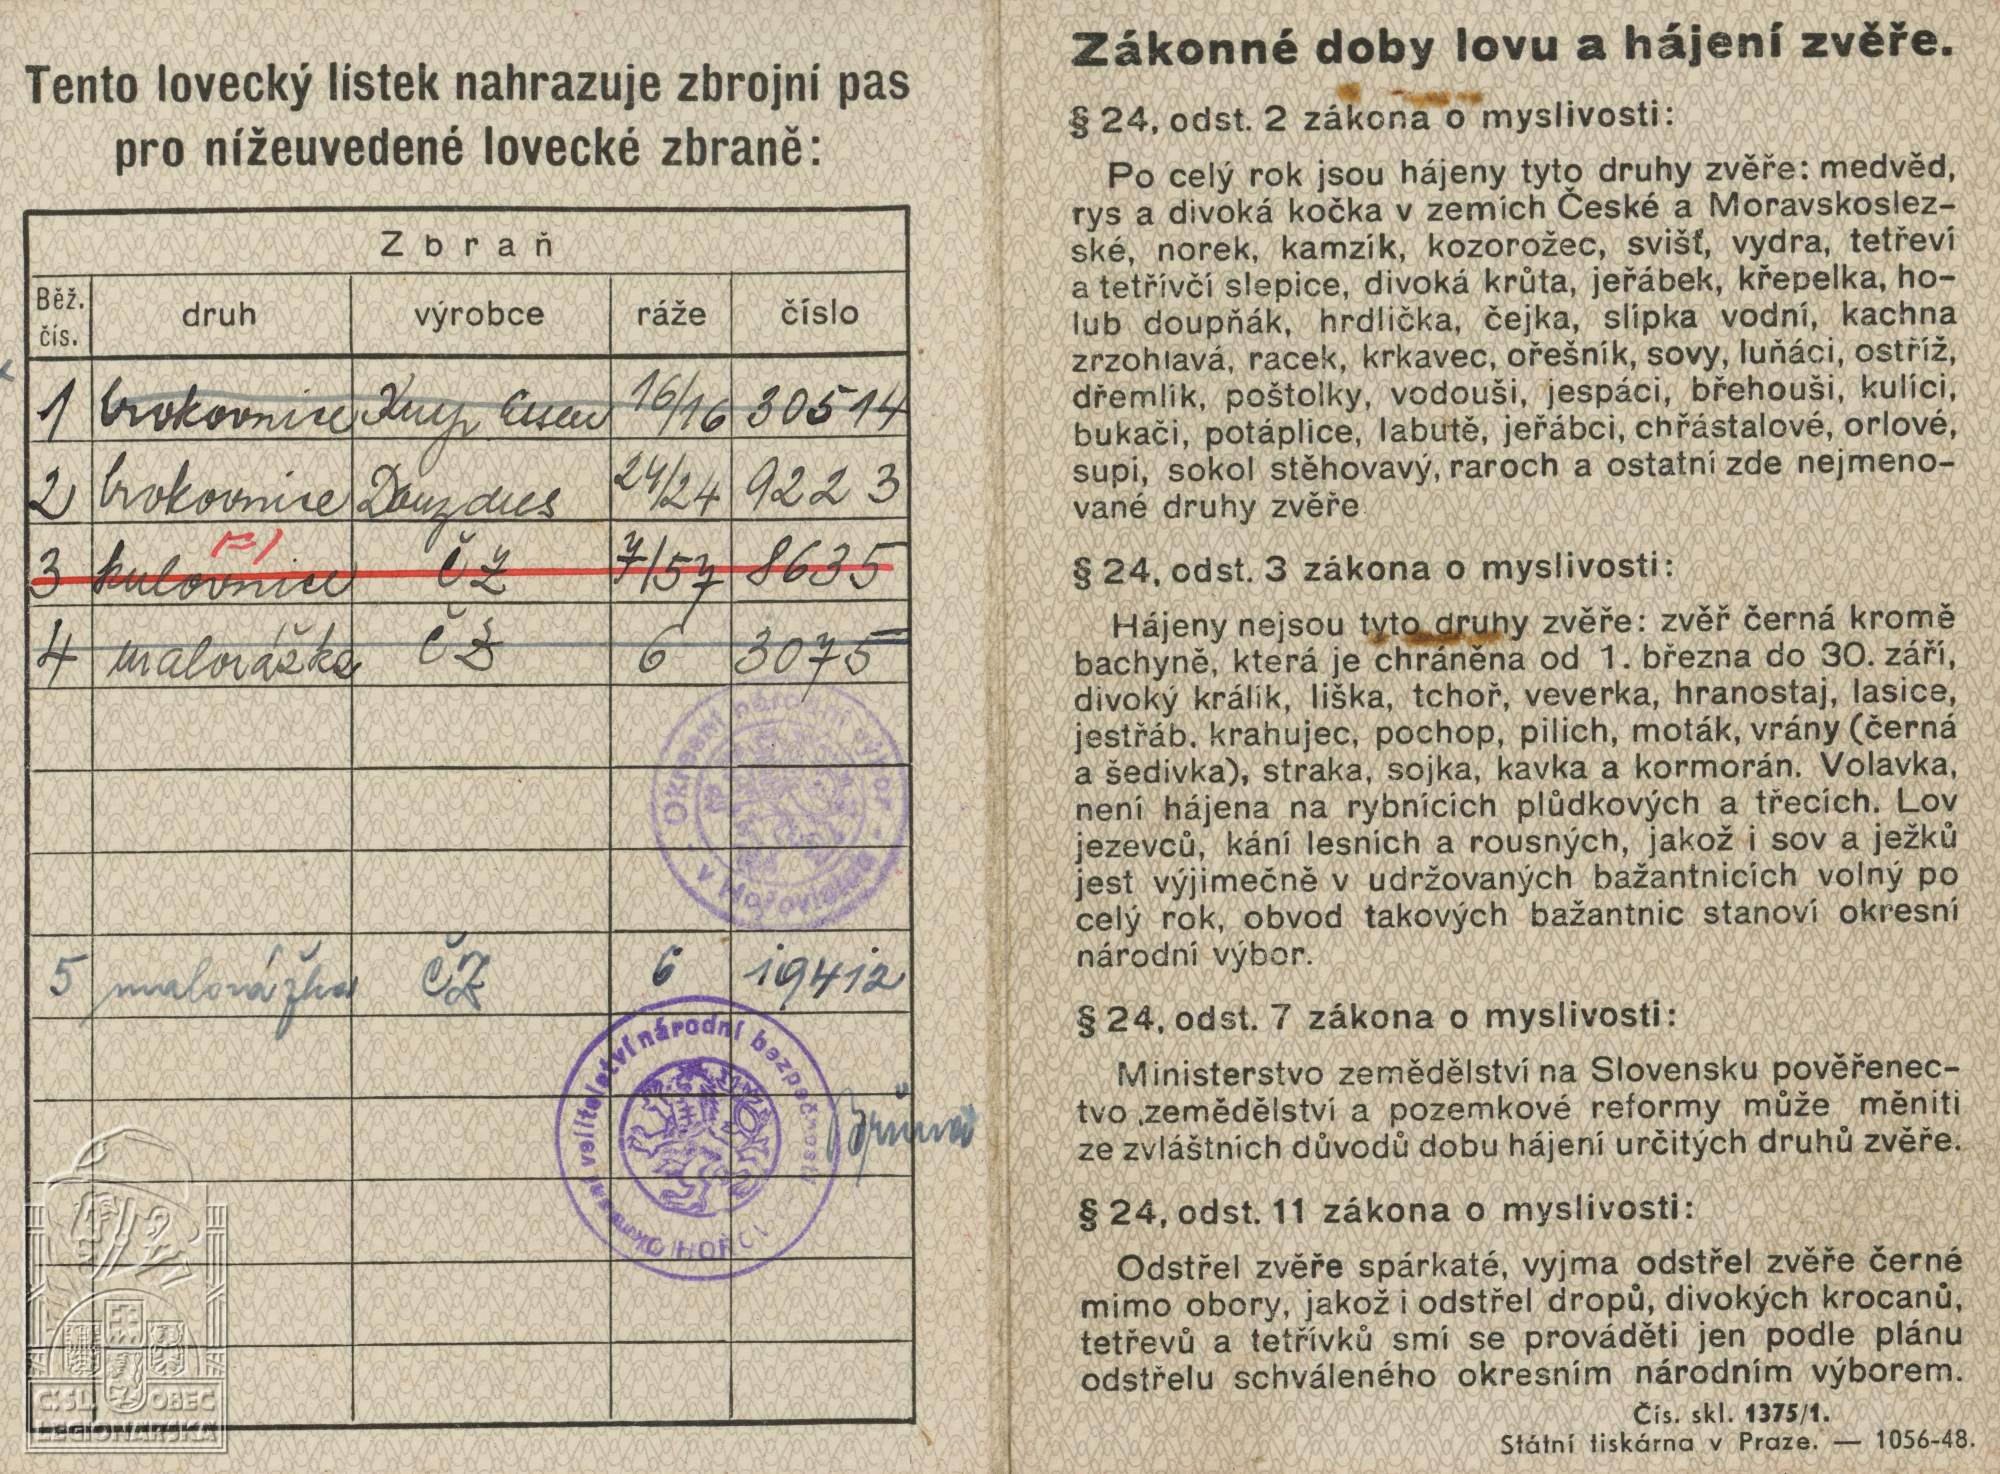 Tento lovecký lístek nahrazuje zbrojní pas
pro nížeuvedené lovecké zbraně:
Zbraň
Běž. čís. druh výrobce ráže číslo
1 brokovnice 16/16 30514
2 brokovnice 24/24 9223
3 kulovnice ČZ 7/57 8635
4 malorážka ČZ 6 3075
Okresní národní výbor
v Hořovicích
5 malorážka ČZ 6 19412
velitelství národní bezpečnosti
ČSL. OBEC
LEGIONÁŘSKÁ
Zákonné doby lovu a hájení zvěře.
§ 24, odst. 2 zákona o myslivosti:
Po celý rok jsou hájeny tyto druhy zvěře: medvěd,
rys a divoká kočka v zemích České a Moravskoslez-
ské, norek, kamzík, kozorožec, svišť, vydra, tetřeví
a tetřívčí slepice, divoká krůta, jeřábek, křepelka, ho-
lub doupňák, hrdlička, čejka, slípka vodní, kachna
zrzohlavá, racek, krkavec, ořešník, sovy, luňáci, ostříž,
dřemlík, poštolky, vodouši, jespáci, břehouši, kulíci,
bukači, potáplice, labutě, jeřábci, chřástalové, orlové,
supi, sokol stěhovavý, raroch a ostatní zde nejmeno-
vané druhy zvěře
§ 24, odst. 3 zákona o myslivosti:
Hájeny nejsou tyto druhy zvěře: zvěř černá kromě
bachyně, která je chráněna od 1. března do 30. září,
divoký králík, liška, tchoř, veverka, hranostaj, lasice,
jestřáb, krahujec, pochop, pilich, moták, vrány (černá
a šedivka), straka, sojka, kavka a kormorán. Volavka,
není hájena na rybnících plůdkových a třecích. Lov
jezevců, kání lesních a rousných, jakož i sov a ježků
jest výjimečně v udržovaných bažantnicích volný po
celý rok, obvod takových bažantnic stanoví okresní
národní výbor.
§ 24, odst. 7 zákona o myslivosti:
Ministerstvo zemědělství na Slovensku pověřenec-
tvo zemědělství a pozemkové reformy může měniti
ze zvláštních důvodů dobu hájení určitých druhů zvěře.
§ 24, odst. 11 zákona o myslivosti:
Odstřel zvěře spárkaté, vyjma odstřel zvěře černé
mimo obory, jakož i odstřel dropů, divokých krocanů,
tetřevů a tetřívků smí se prováděti jen podle plánu
odstřelu schváleného okresním národním výborem.
Čís. skl. 1375/1.
Státní tiskárna v Praze. — 1056-48.